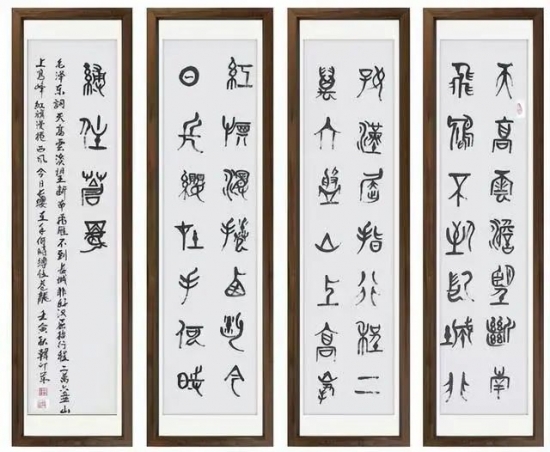 天高雲澹望斷南
飛鴈不到長城非
好漢屈指行程二
萬六盤山上高峯
紅旗漫捲西風今
日長纓在手何時
縛住蒼龍
毛泽东詞天高雲淡望断南飛雁不到長城非好汉屈指行程二萬六盘山
上高峰紅旗漫捲西风今日長缨在手何時縛住苍龍壬寅秋韓